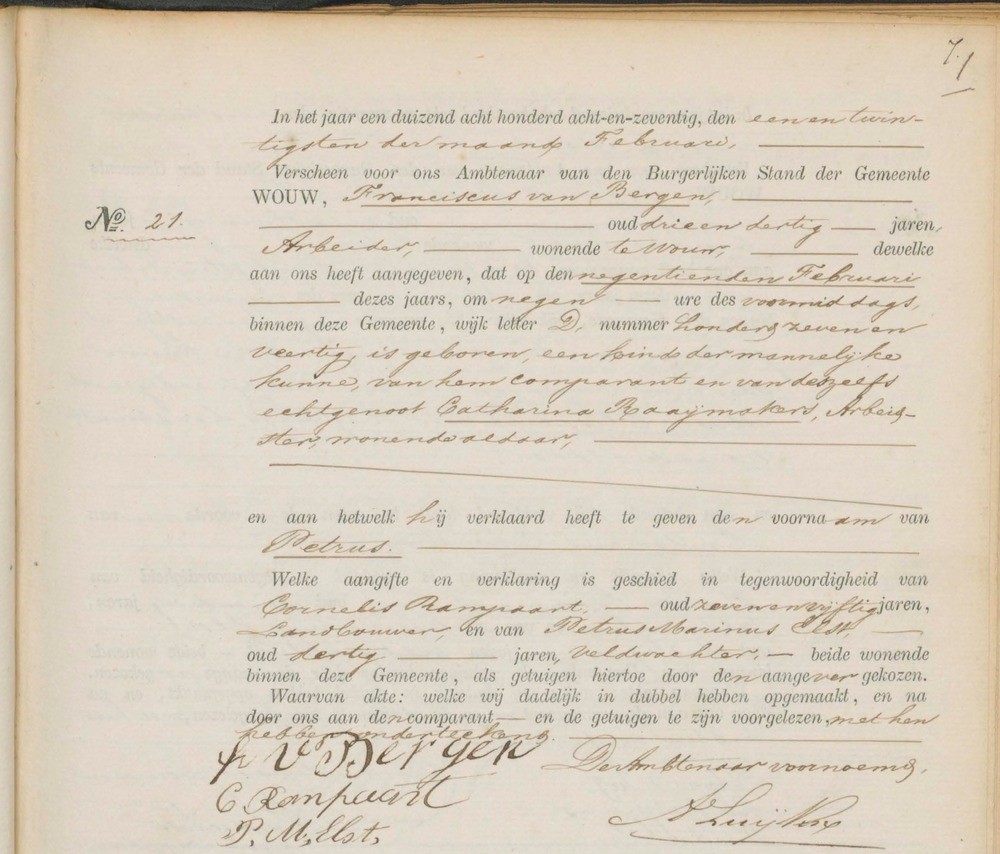 7.1
In het jaar een duizend acht honderd acht-en-zeventig, den een en twin-
tigsten der maand Februari,
Verscheen voor ons Ambtenaar van den Burgerlijken Stand der Gemeente
WOUW, Franciscus van Bergen,
No. 21.
oud drie en dertig jaren,
Arbeider, wonende te Wouw, dewelke
aan ons heeft aangegeven, dat op den negentienden Februari
dezes jaars, om negen ure des voormiddags,
binnen deze Gemeente, wijk letter D, nummer honderd zeven en
veertig, is geboren, een kind der mannelijke
kunne, van hem comparant en van deszelfs
echtgenoot Catharina Raaijmakers, Arbeid-
ster, wonende aldaar,
en aan hetwelk hij verklaard heeft te geven den voornaam van
Petrus.
Welke aangifte en verklaring is geschied in tegenwoordigheid van
Cornelis Rampaart, oud zeven en vijftig jaren,
Landbouwer, en van Petrus Marinus Elst,
oud dertig jaren, veldwachter, beide wonende
binnen deze Gemeente, als getuigen hiertoe door den aangever gekozen.
Waarvan akte: welke wij dadelijk in dubbel hebben opgemaakt, en na
door ons aan den comparant en de getuigen te zijn voorgelezen, met hen
hebben onderteekend.
v Bergen De Ambtenaar voornoemd,
C. Rampaart
P. M. Elst,